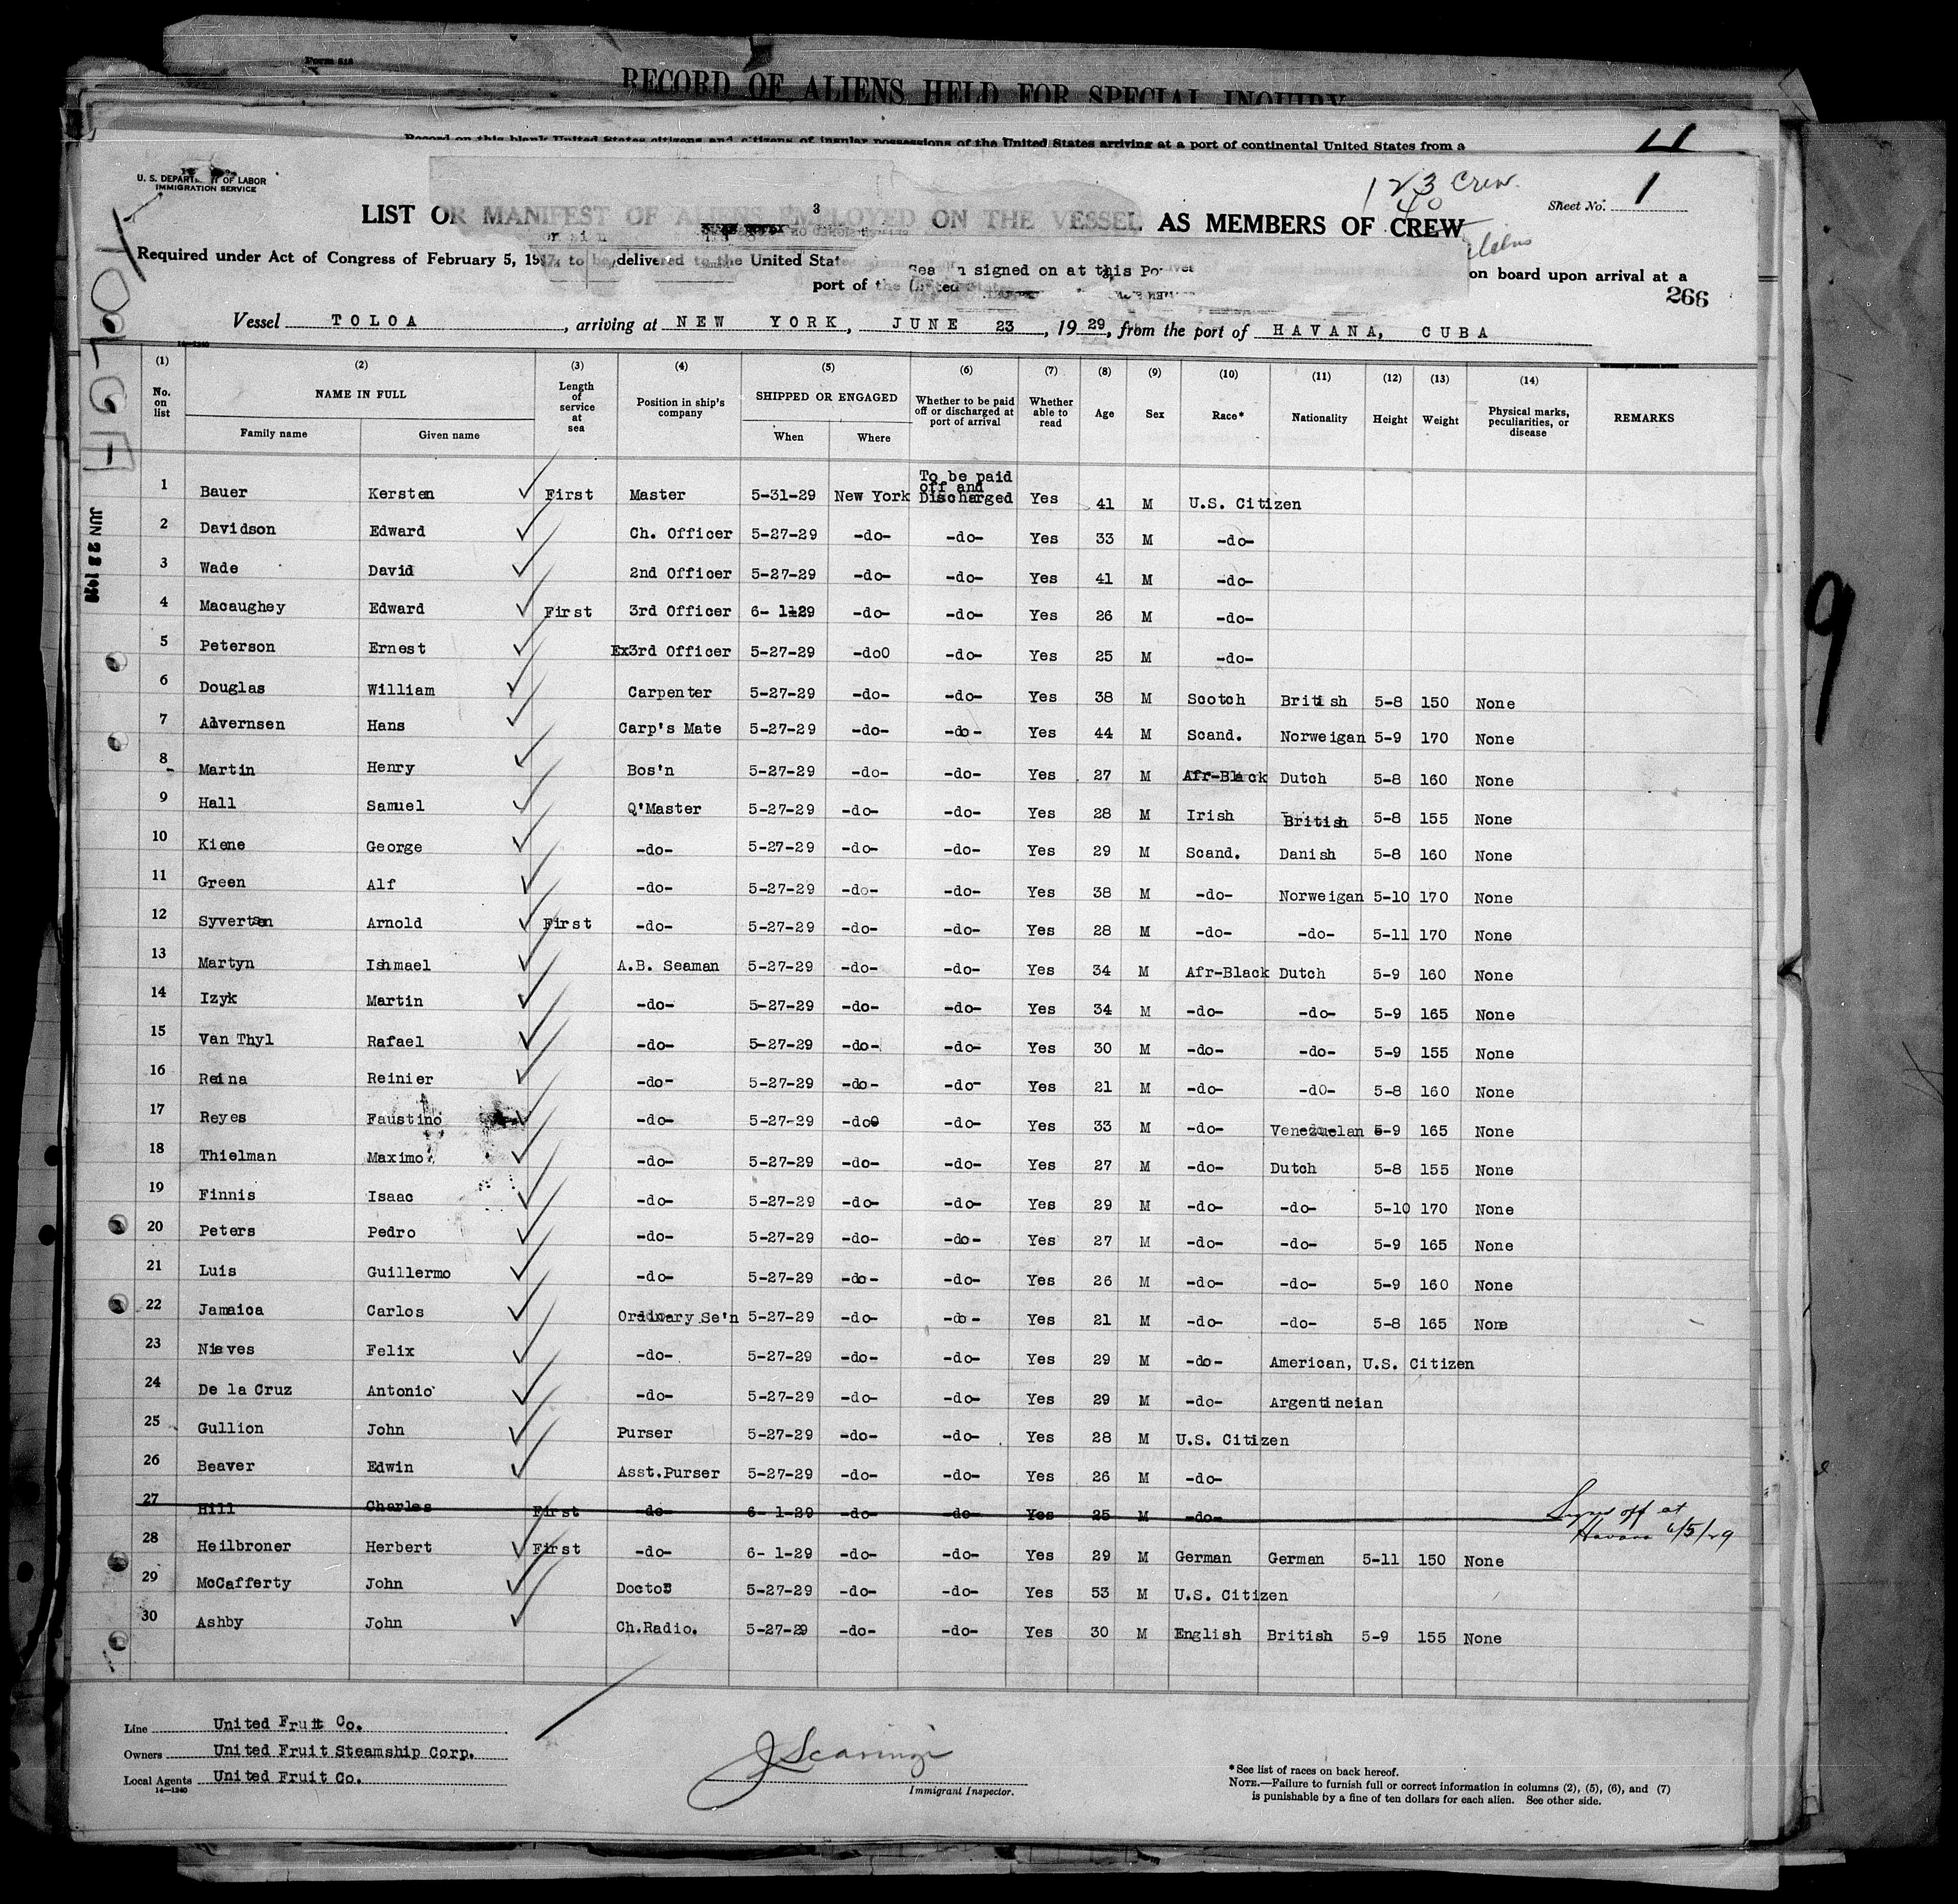 Form 618
RECORD OF ALIENS HELD FOR SPECIAL INQUIRY
Record on this blank United States citizens and citizens of insular possessions of the United States arriving at a port of continental United States from a
U. S. DEPARTMENT OF LABOR
IMMIGRATION SERVICE
123 Crew.
40
Sheet No. 1
3
LIST OR MANIFEST OF ALIENS EMPLOYED ON THE VESSEL AS MEMBERS OF CREW
Required under Act of Congress of February 5, 1917, to be delivered to the United Stat
signed on at this Po
on board upon arrival at a
port of the United
266
Vessel TOLOA, arriving at NEW YORK, JUNE 23, 1929, from the port of HAVANA, CUBA
TOLOA
JUN 23 1929
9
(1) (2) (3) (4) (5) (6) (7) (8) (9) (10) (11) (12) (13) (14)
No. on list NAME IN FULL Family name Given name Length of service at sea Position in ship's company SHIPPED OR ENGAGED When Where Whether to be paid off or discharged at port of arrival Whether able to read Age Sex Race* Nationality Height Weight Physical marks, peculiarities, or disease REMARKS
1 Bauer Kersten First Master 5-31-29 New York To be paid off and Discharged Yes 41 M U.S. Citizen
2 Davidson Edward Ch. Officer 5-27-29 -do- -do- Yes 33 M -do-
3 Wade David 2nd Officer 5-27-29 -do- -do- Yes 41 M -do-
4 Macaughey Edward First 3rd Officer 6- 1-29 -do- -do- Yes 26 M -do-
5 Peterson Ernest Ex3rd Officer 5-27-29 -doO -do- Yes 25 M -do-
6 Douglas William Carpenter 5-27-29 -do- -do- Yes 38 M Scotch British 5-8 150 None
7 Alvernsen Hans Carp's Mate 5-27-29 -do- -do- Yes 44 M Scand. Norweigan 5-9 170 None
8 Martin Henry Bos'n 5-27-29 -do- -do- Yes 27 M Afr-Black Dutch 5-8 160 None
9 Hall Samuel Q'Master 5-27-29 -do- -do- Yes 28 M Irish British 5-8 155 None
10 Kiene George -do- 5-27-29 -do- -do- Yes 29 M Scand. Danish 5-8 160 None
11 Green Alf -do- 5-27-29 -do- -do- Yes 38 M -do- Norweigan 5-10 170 None
12 Syvertsen Arnold First -do- 5-27-29 -do- -do- Yes 28 M -do- -do- 5-11 170 None
13 Martyn Ishmael A.B. Seaman 5-27-29 -do- -do- Yes 34 M Afr-Black Dutch 5-9 160 None
14 Izyk Martin -do- 5-27-29 -do- -do- Yes 34 M -do- -do- 5-9 165 None
15 Van Thyl Rafael -do- 5-27-29 -do- -do- Yes 30 M -do- -do- 5-9 155 None
16 Reina Reinier -do- 5-27-29 -do- -do- Yes 21 M -do- -dO- 5-8 160 None
17 Reyes Faustino -do- 5-27-29 -do0 -do- Yes 33 M -do- Venezuelan 5-9 165 None
18 Thielman Maximo -do- 5-27-29 -do- -do- Yes 27 M -do- Dutch 5-8 155 None
19 Finnis Isaac -do- 5-27-29 -do- -do- Yes 29 M -do- -do- 5-10 170 None
20 Peters Pedro -do- 5-27-29 -do- -do- Yes 27 M -do- -do- 5-9 165 None
21 Luis Guillermo -do- 5-27-29 -do- -do- Yes 26 M -do- -do- 5-9 160 None
22 Jamaica Carlos Ordinary Se'n 5-27-29 -do- -do- Yes 21 M -do- -do- 5-8 165 None
23 Nieves Felix -do- 5-27-29 -do- -do- Yes 29 M -do- American, U.S. Citizen
24 De la Cruz Antonio -do- 5-27-29 -do- -do- Yes 29 M -do- Argentineian
25 Gullion John Purser 5-27-29 -do- -do- Yes 28 M U.S. Citizen
26 Beaver Edwin Asst.Purser 5-27-29 -do- -do- Yes 26 M -do-
27 Hill Charles First -do- 6- 1-29 -do- -do- Yes 25 M -do- Signed off at
Havana 6/5/29
28 Heilbroner Herbert First -do- 6- 1-29 -do- -do- Yes 29 M German German 5-11 150 None
29 McCafferty John Doctor 5-27-29 -do- -do- Yes 53 M U.S. Citizen
30 Ashby John Ch.Radio. 5-27-29 -do- -do- Yes 30 M English British 5-9 155 None
Line United Fruit Co.
Owners United Fruit Steamship Corp.
Local Agents United Fruit Co.
14—1240
J Scaringi
Immigrant Inspector.
*See list of races on back hereof.
NOTE.—Failure to furnish full or correct information in columns (2), (5), (6), and (7)
is punishable by a fine of ten dollars for each alien. See other side.